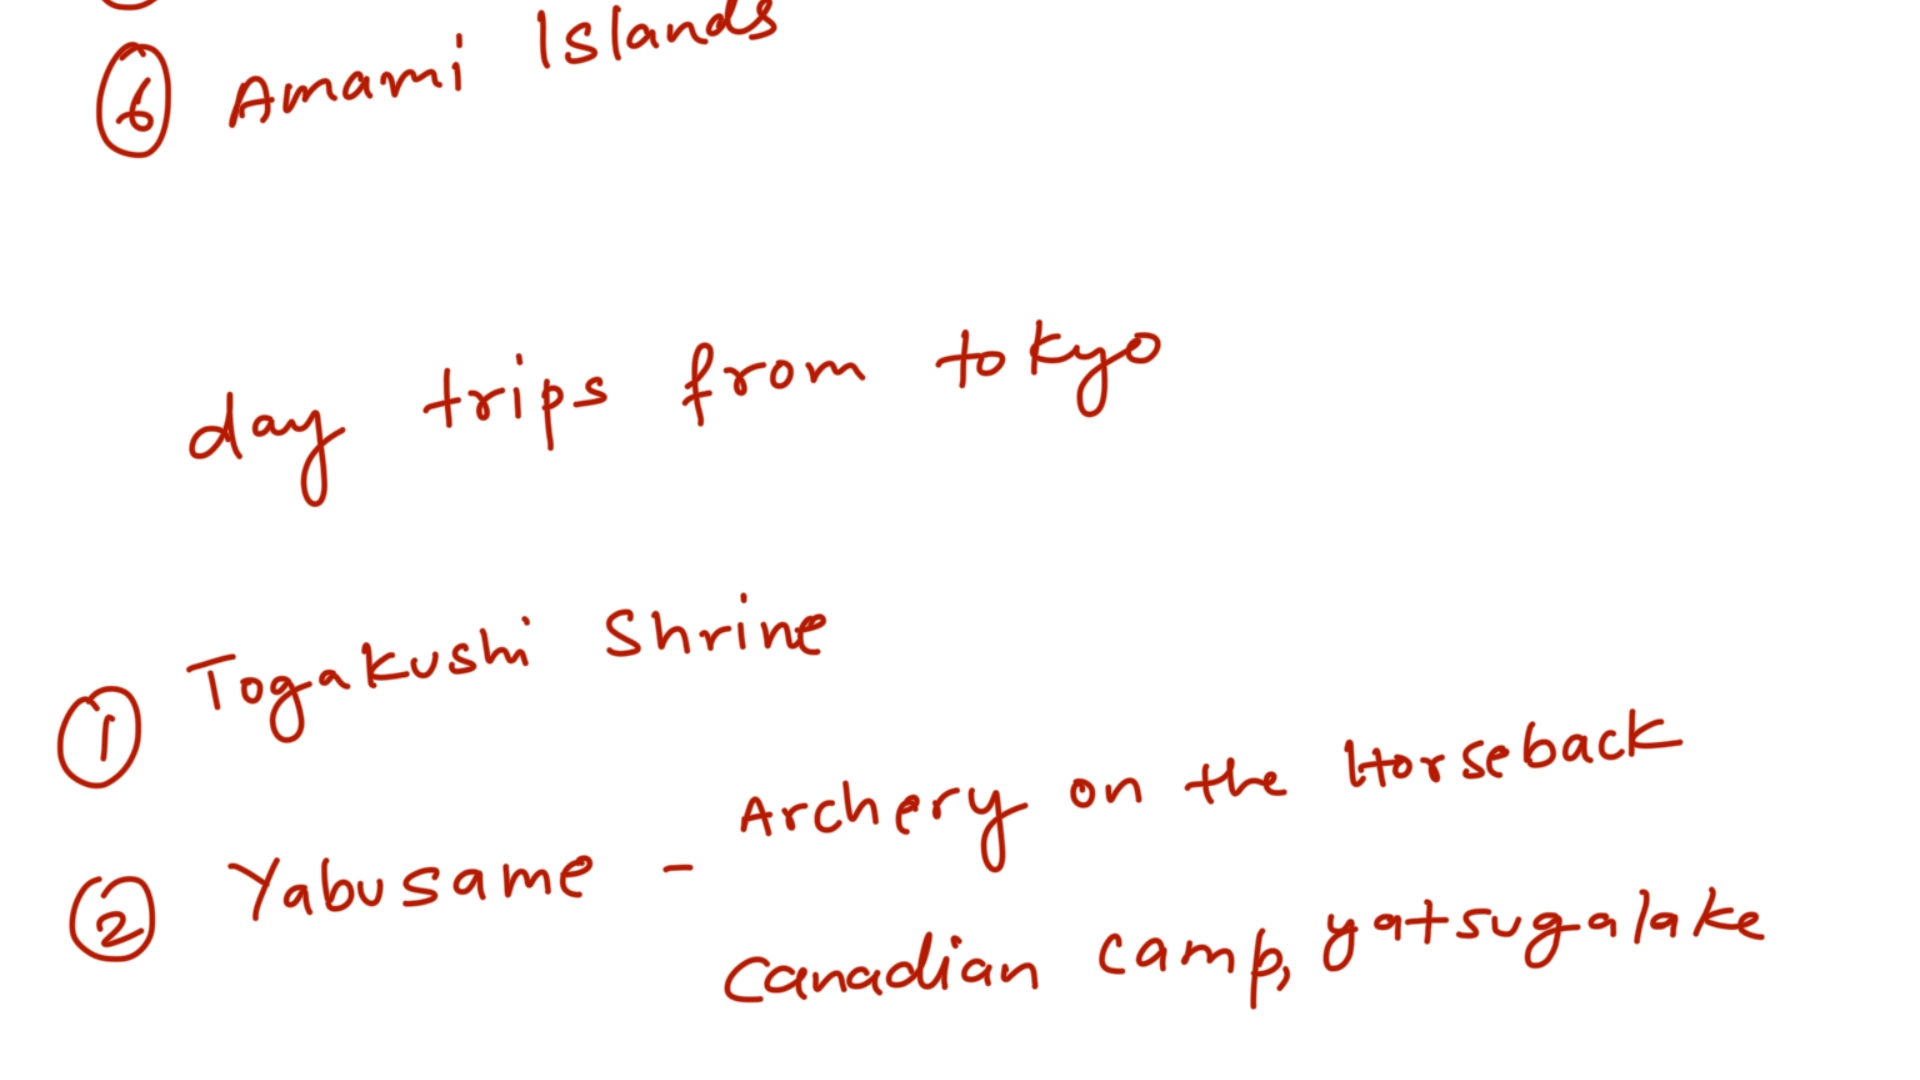 ⑥ Amami Islands
day trips from tokyo
① Togakushi Shrine
② Yabusame - Archery on the Horseback
Canadian camp, yatsugalake